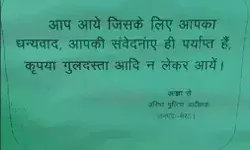 आप आये जिसके लिए आपका
धन्यवाद, आपकी संवेदनांए ही पर्याप्त हैं,
कृपया गुलदस्ता आदि न लेकर आयें।
आज्ञा से
पुलिस अधीक्षक
जनपद-मेरठ।